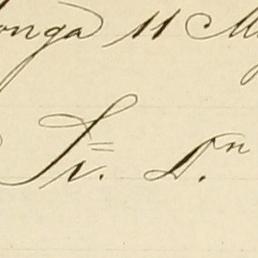 onga 11 M
Sr. Dn